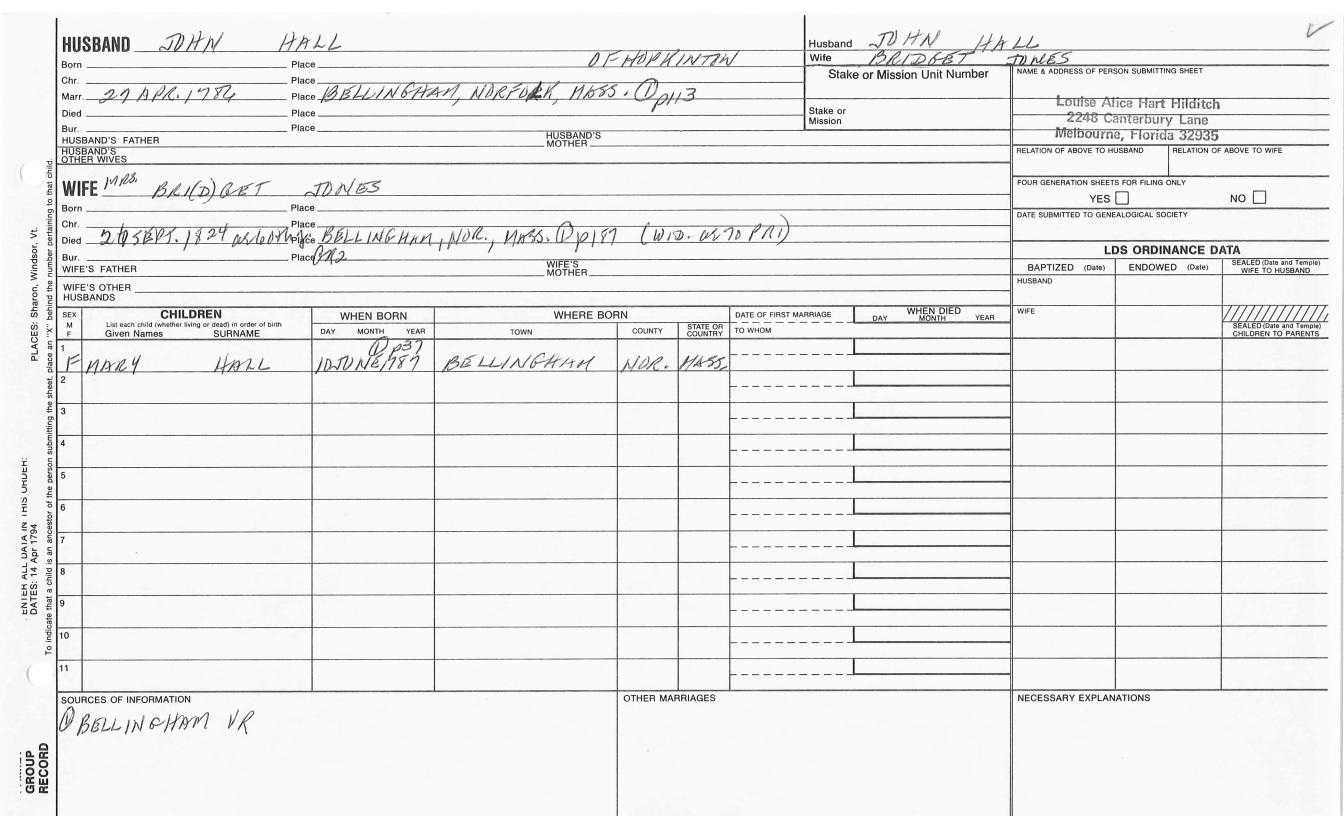 HUSBAND JOHN HALL
Born Place OF HOPKINTON
Chr. Place
Marr. 27 APR. 1786 Place BELLINGHAM, NORFOLK, MASS. ① p113
Died Place
Bur. Place
HUSBAND'S FATHER HUSBAND'S MOTHER
HUSBAND'S OTHER WIVES
Husband JOHN HALL
Wife BRIDGET JONES
Stake or Mission Unit Number
Stake or Mission
NAME & ADDRESS OF PERSON SUBMITTING SHEET
Louise Alice Hart Hilditch
2248 Canterbury Lane
Melbourne, Florida 32935
RELATION OF ABOVE TO HUSBAND RELATION OF ABOVE TO WIFE
FOUR GENERATION SHEETS FOR FILING ONLY
YES NO
DATE SUBMITTED TO GENEALOGICAL SOCIETY
WIFE MRS. BRI(D)GET JONES
Born Place
Chr. Place
Died SEPT. 1824 Place BELLINGHAM, NOR., MASS. ① p187 (WID. as to PR1)
Bur. Place PR2
WIFE'S FATHER WIFE'S MOTHER
WIFE'S OTHER HUSBANDS
LDS ORDINANCE DATA
BAPTIZED (Date) ENDOWED (Date) SEALED (Date and Temple) WIFE TO HUSBAND
HUSBAND
WIFE
SEALED (Date and Temple) CHILDREN TO PARENTS
SEX M F
CHILDREN
List each child (whether living or dead) in order of birth
Given Names SURNAME
WHEN BORN
DAY MONTH YEAR
WHERE BORN
TOWN COUNTY STATE OR COUNTRY
DATE OF FIRST MARRIAGE
TO WHOM
WHEN DIED
DAY MONTH YEAR
① p37
1 F MARY HALL 10 JUNE 1787 BELLINGHAM NOR. MASS.
2
3
4
5
6
7
8
9
10
11
SOURCES OF INFORMATION
① BELLINGHAM VR
OTHER MARRIAGES
NECESSARY EXPLANATIONS
PLACES: Sharon, Windsor, Vt.
ENTER ALL DATA IN THIS ORDER:
DATES: 14 Apr 1794
To indicate that a child is an ancestor of the person submitting the sheet, place an "X" behind the number pertaining to that child.
GROUP
RECORD